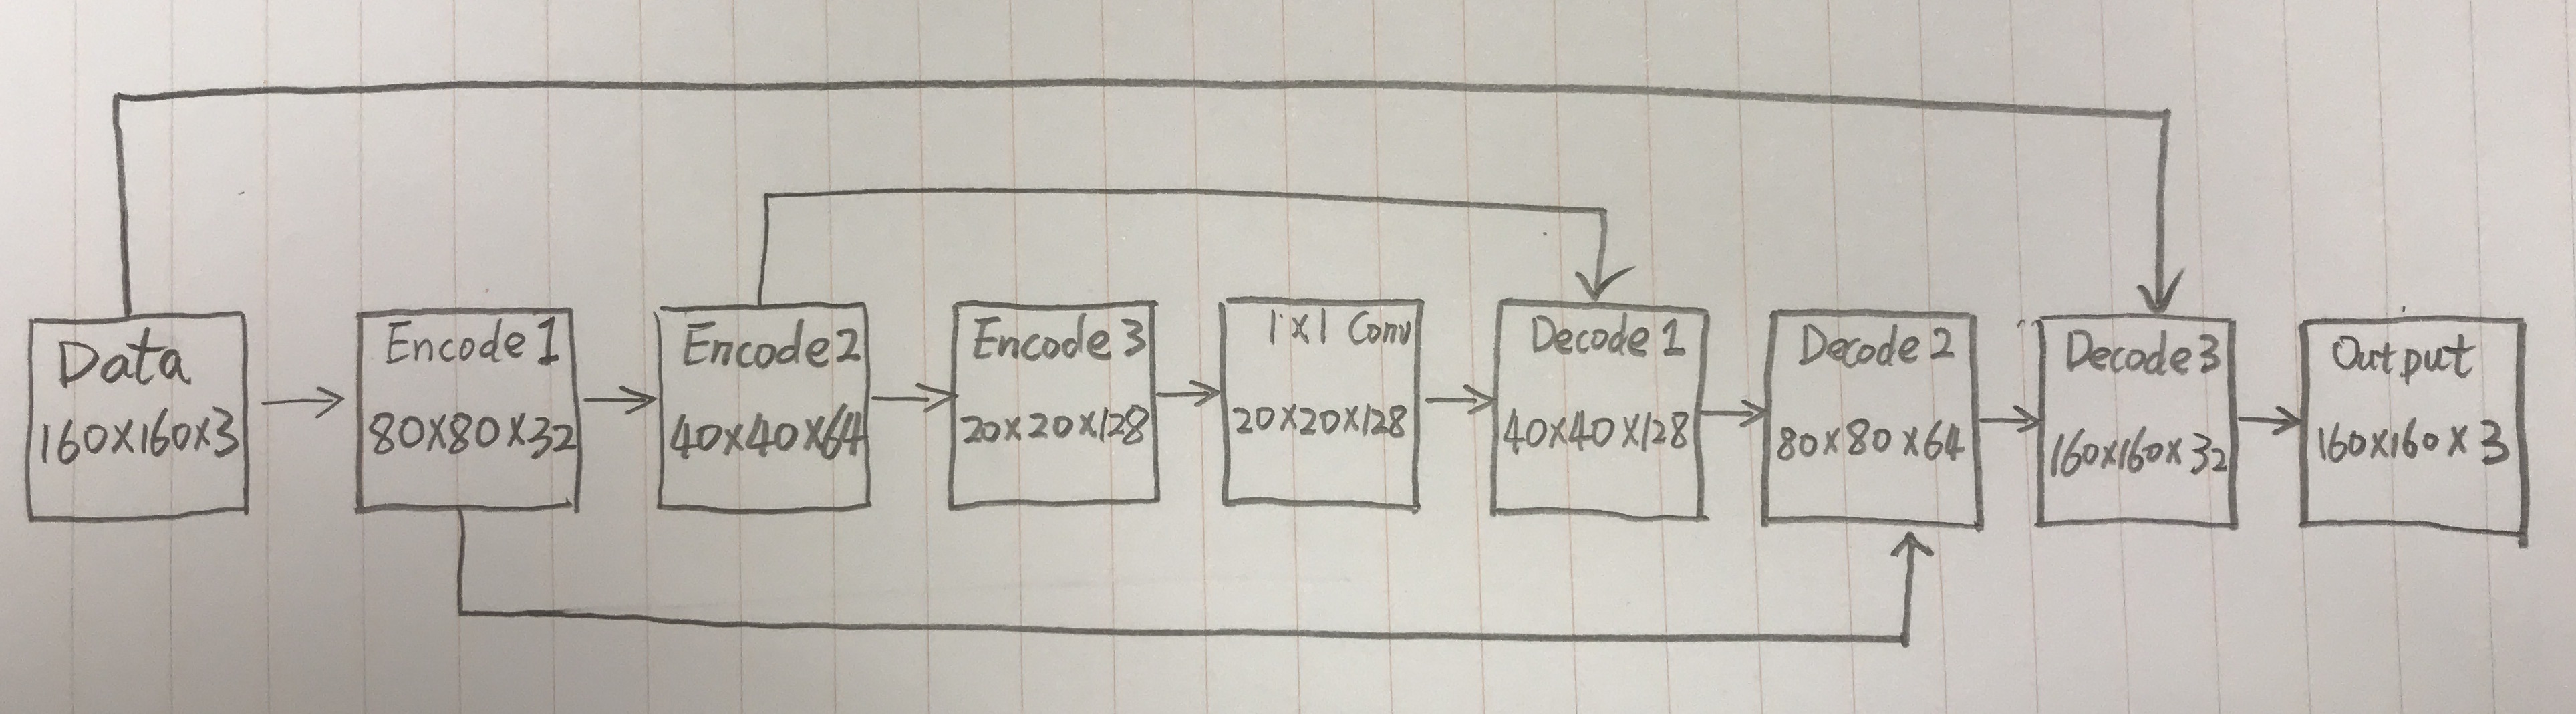 Data
160x160x3
Encode1
80x80x32
Encode2
40x40x64
Encode3
20x20x128
1x1 Conv
20x20x128
Decode1
40x40x128
Decode2
80x80x64
Decode3
160x160x32
Output
160x160x3